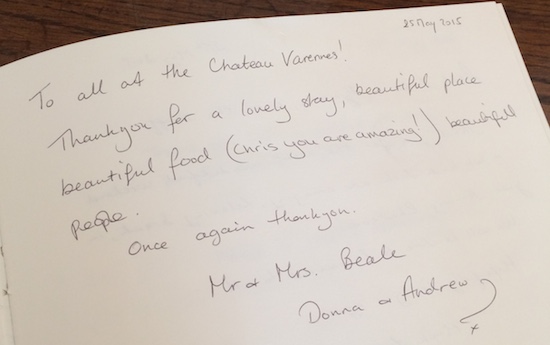 25 May 2015
To all at the Chateau Varennes!
Thankyou for a lovely stay, beautiful place
beautiful food (Chris you are amazing!) beautiful
people.
Once again thankyou.
Mr & Mrs. Beale
Donna & Andrew
x